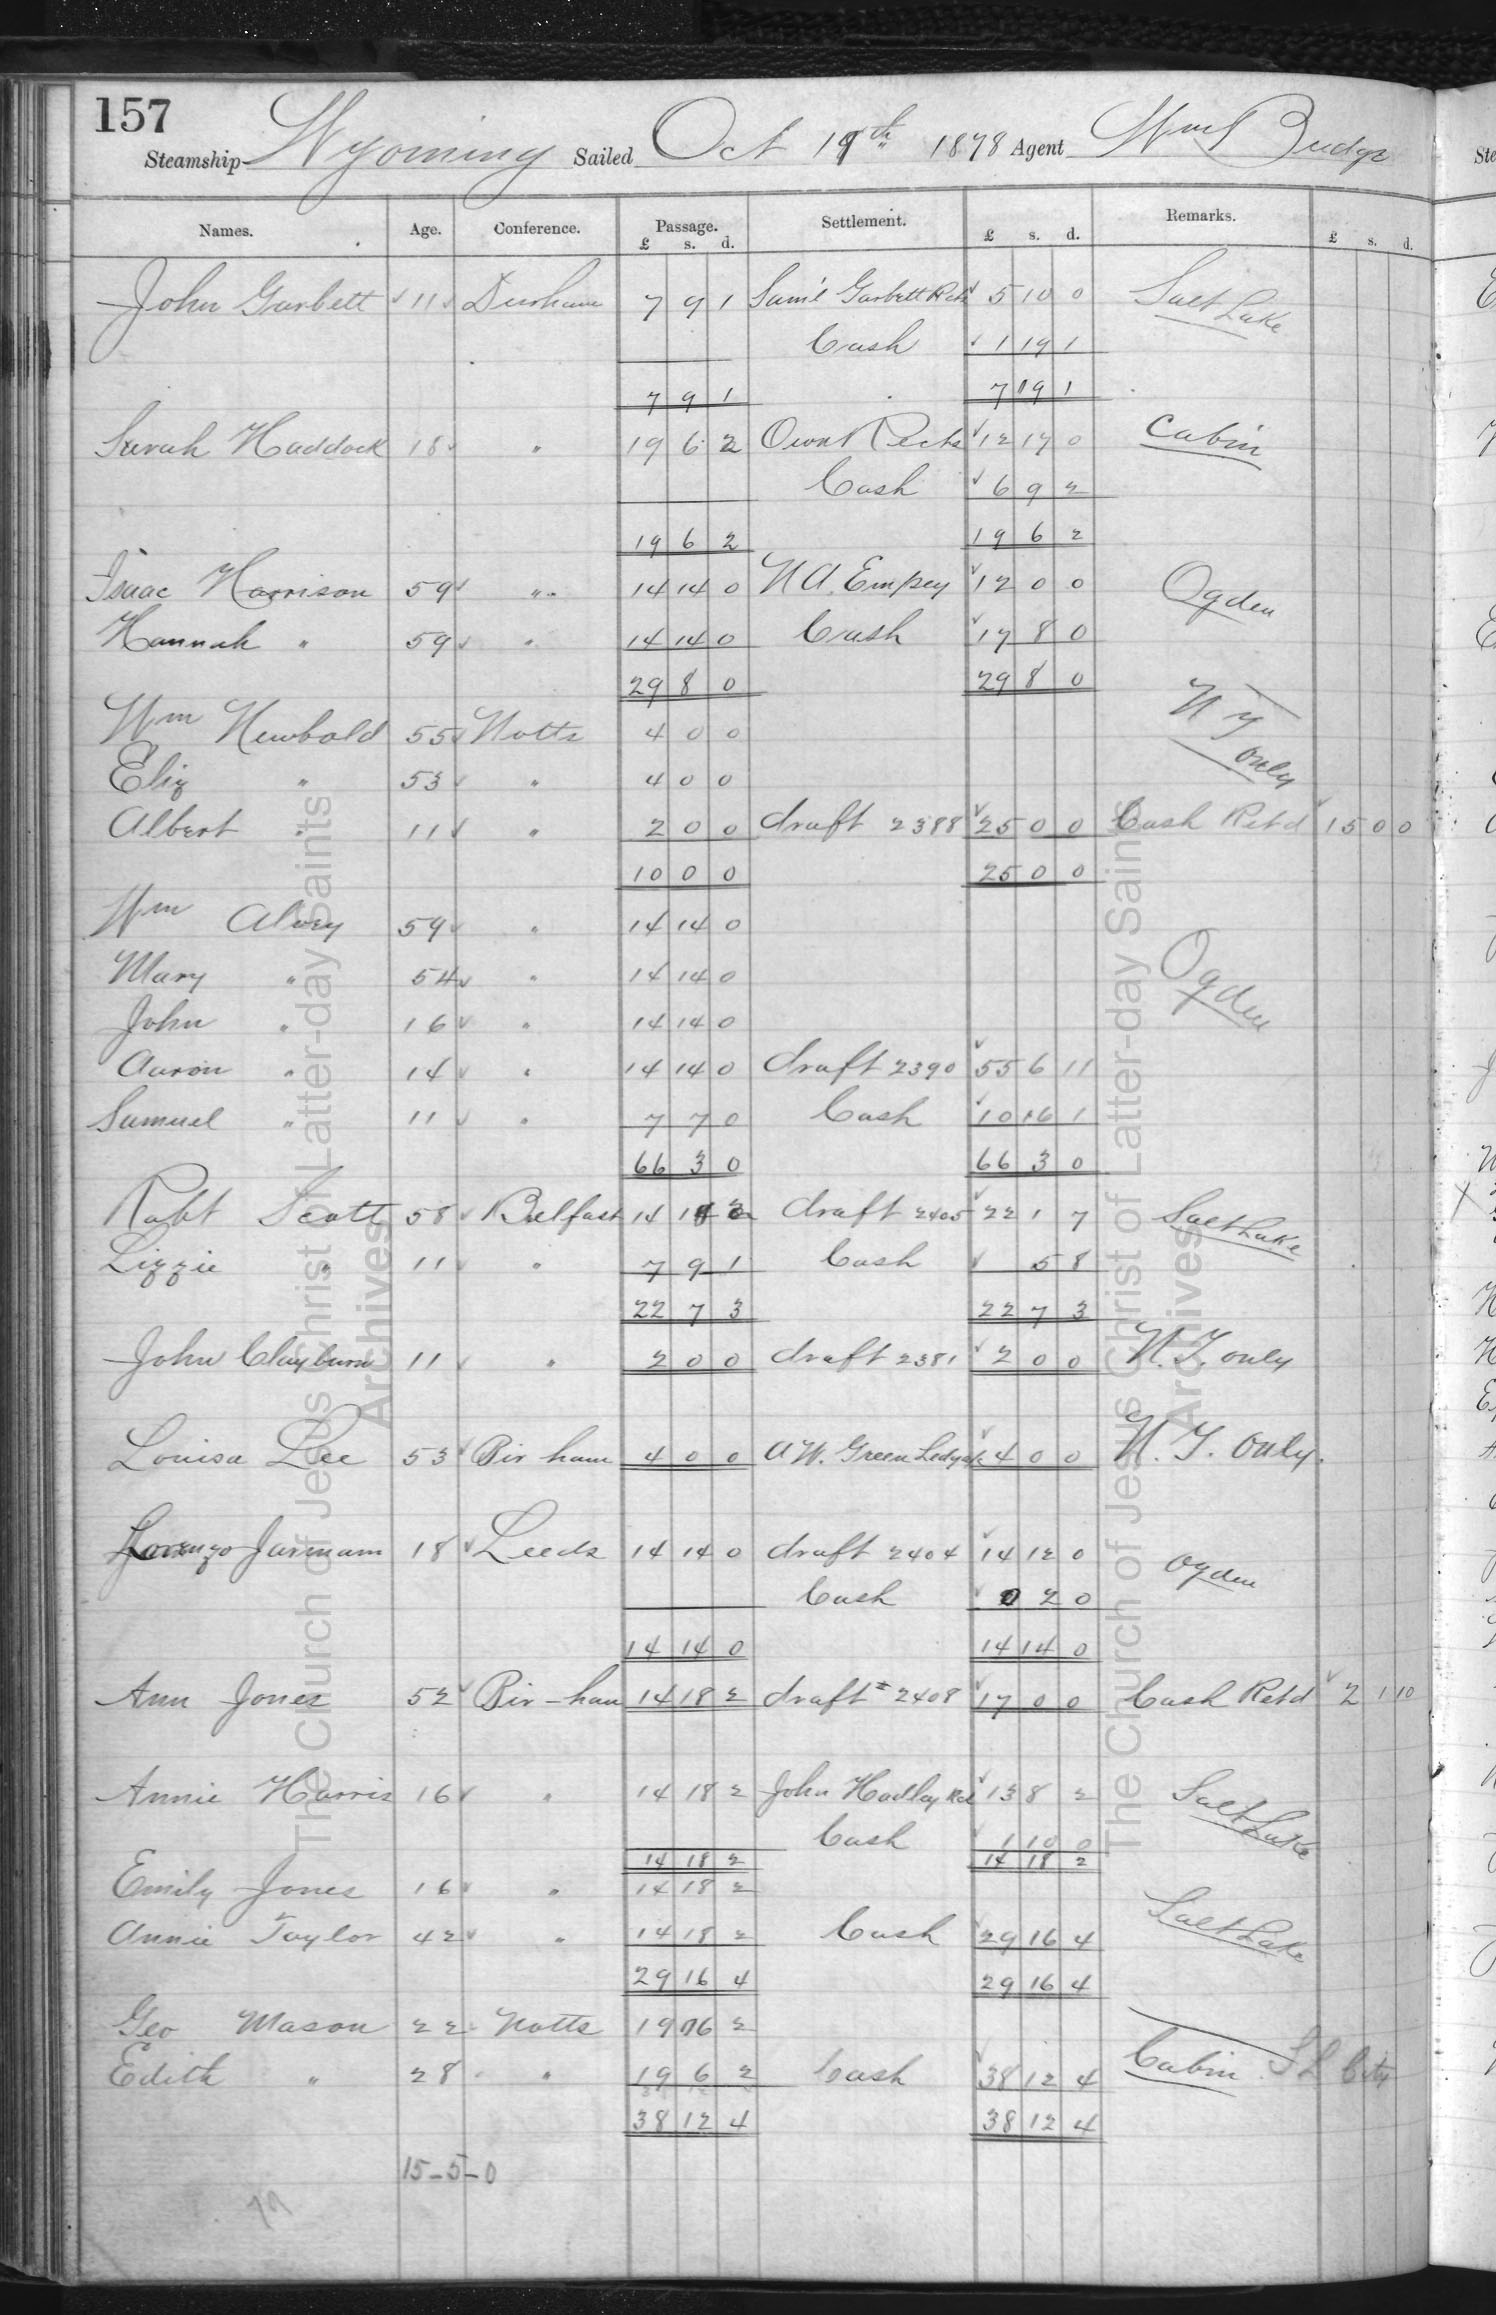 157
Steamship Wyoming Sailed Oct 19th 1878 Agent Wm Budge
Names. Age. Conference. Passage. Settlement. Remarks.
£ s. d. £ s. d. £ s. d.
John Garbett 11 Durham 7 9 1 Saml Garbett 5 10 0 Salt Lake
Cash 1 19 1
7 9 1 7 9 1
Sarah Haddock 18 " 19 6 2 Own Rects 12 17 0 Cabin
Cash 6 9 2
19 6 2 19 6 2
Isaac Harrison 59 " 14 14 0 N A. Empey 12 0 0 Ogden
Hannah " 59 " 14 14 0 Cash 17 8 0
29 8 0 29 8 0
Wm Newbold 55 Notts 4 0 0 N Y only
Eliz " 53 " 4 0 0
Albert " 11 " 2 0 0 draft 2388 25 0 0 Cash Retd 15 0 0
10 0 0 25 0 0
Wm Alvey 59 " 14 14 0
Mary " 54 " 14 14 0 Ogden
John " 16 " 14 14 0
Aaron " 14 " 14 14 0 draft 2390 55 6 11
Samuel " 11 " 7 7 0 Cash 10 16 1
66 3 0 66 3 0
Robt Scott 58 Belfast 14 18 2 draft 2405 22 1 7 Salt Lake
Lizzie " 11 " 7 9 1 Cash 5 8
22 7 3 22 7 3
John Clayburn 11 " 2 0 0 draft 2381 2 0 0 N. Y. only
Louisa Lee 53 Bir ham 4 0 0 A W. Green 4 0 0 N. Y. only.
Lorenzo Jarmam 18 Leeds 14 14 0 draft 2404 14 12 0 Ogden
Cash 0 2 0
14 14 0 14 14 0
Ann Jones 52 Bir-ham 14 18 2 draft # 2408 17 0 0 Cash Retd 2 1 10
Annie Harris 16 " 14 18 2 John Hadley 13 8 2 Salt Lake
Cash 1 10 0
14 18 2 14 18 2
Emily Jones 16 " 14 18 2
Annie Taylor 42 " 14 18 2 Cash 29 16 4 Salt Lake
29 16 4 29 16 4
Geo Mason 22 Notts 19 6 2
Edith " 28 " 19 6 2 Cash 38 12 4 Cabin S L City
38 12 4 38 12 4
15-5-0
The Church of Jesus Christ of Latter-day Saints
Archives
The Church of Jesus Christ of Latter-day Saints
Archives